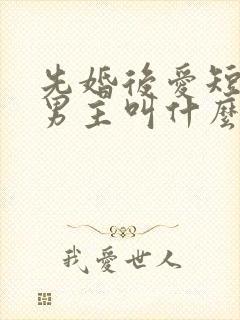 先婚後愛短
男主叫什麼
我愛世人